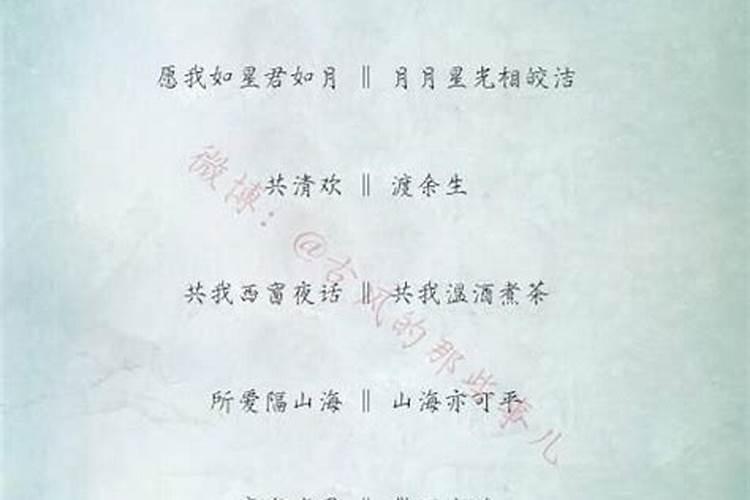 愿我如星君如月 ‖ 月月星光相皎洁
共清欢 ‖ 渡余生
共我西窗夜话 ‖ 共我温酒煮茶
所爱隔山海 ‖ 山海亦可平
微博：@古风的那些事儿